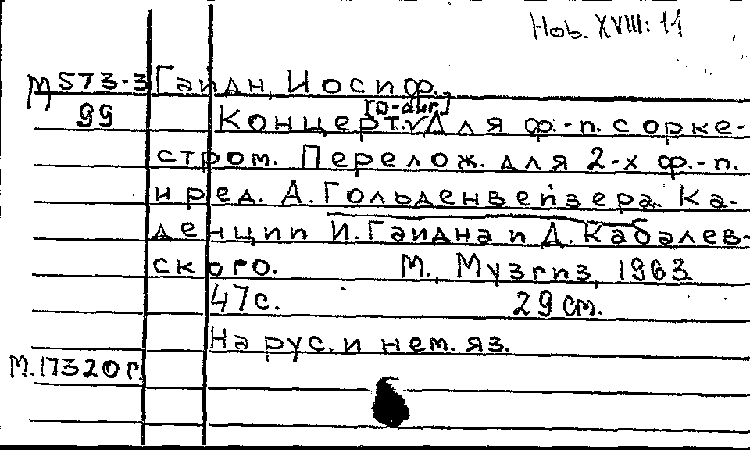 Hob. XVIII: 11
М 573-3 Гайдн, Иосиф.
99 Концерт. [D-dur] Для ф.-п. с орке-
стром. Перелож. для 2-х ф.-п.
и ред. А. Гольденвейзера. Ка-
денции И. Гайдна и Д. Кабалев-
ского. М., Музгиз, 1963.
47 с. 29 см.
На рус. и нем. яз.
М.17320 г.